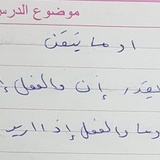 موضوع الدرس
او ما يتقن
يقدر إن والفعل إ
وما والفعل إذا اريد